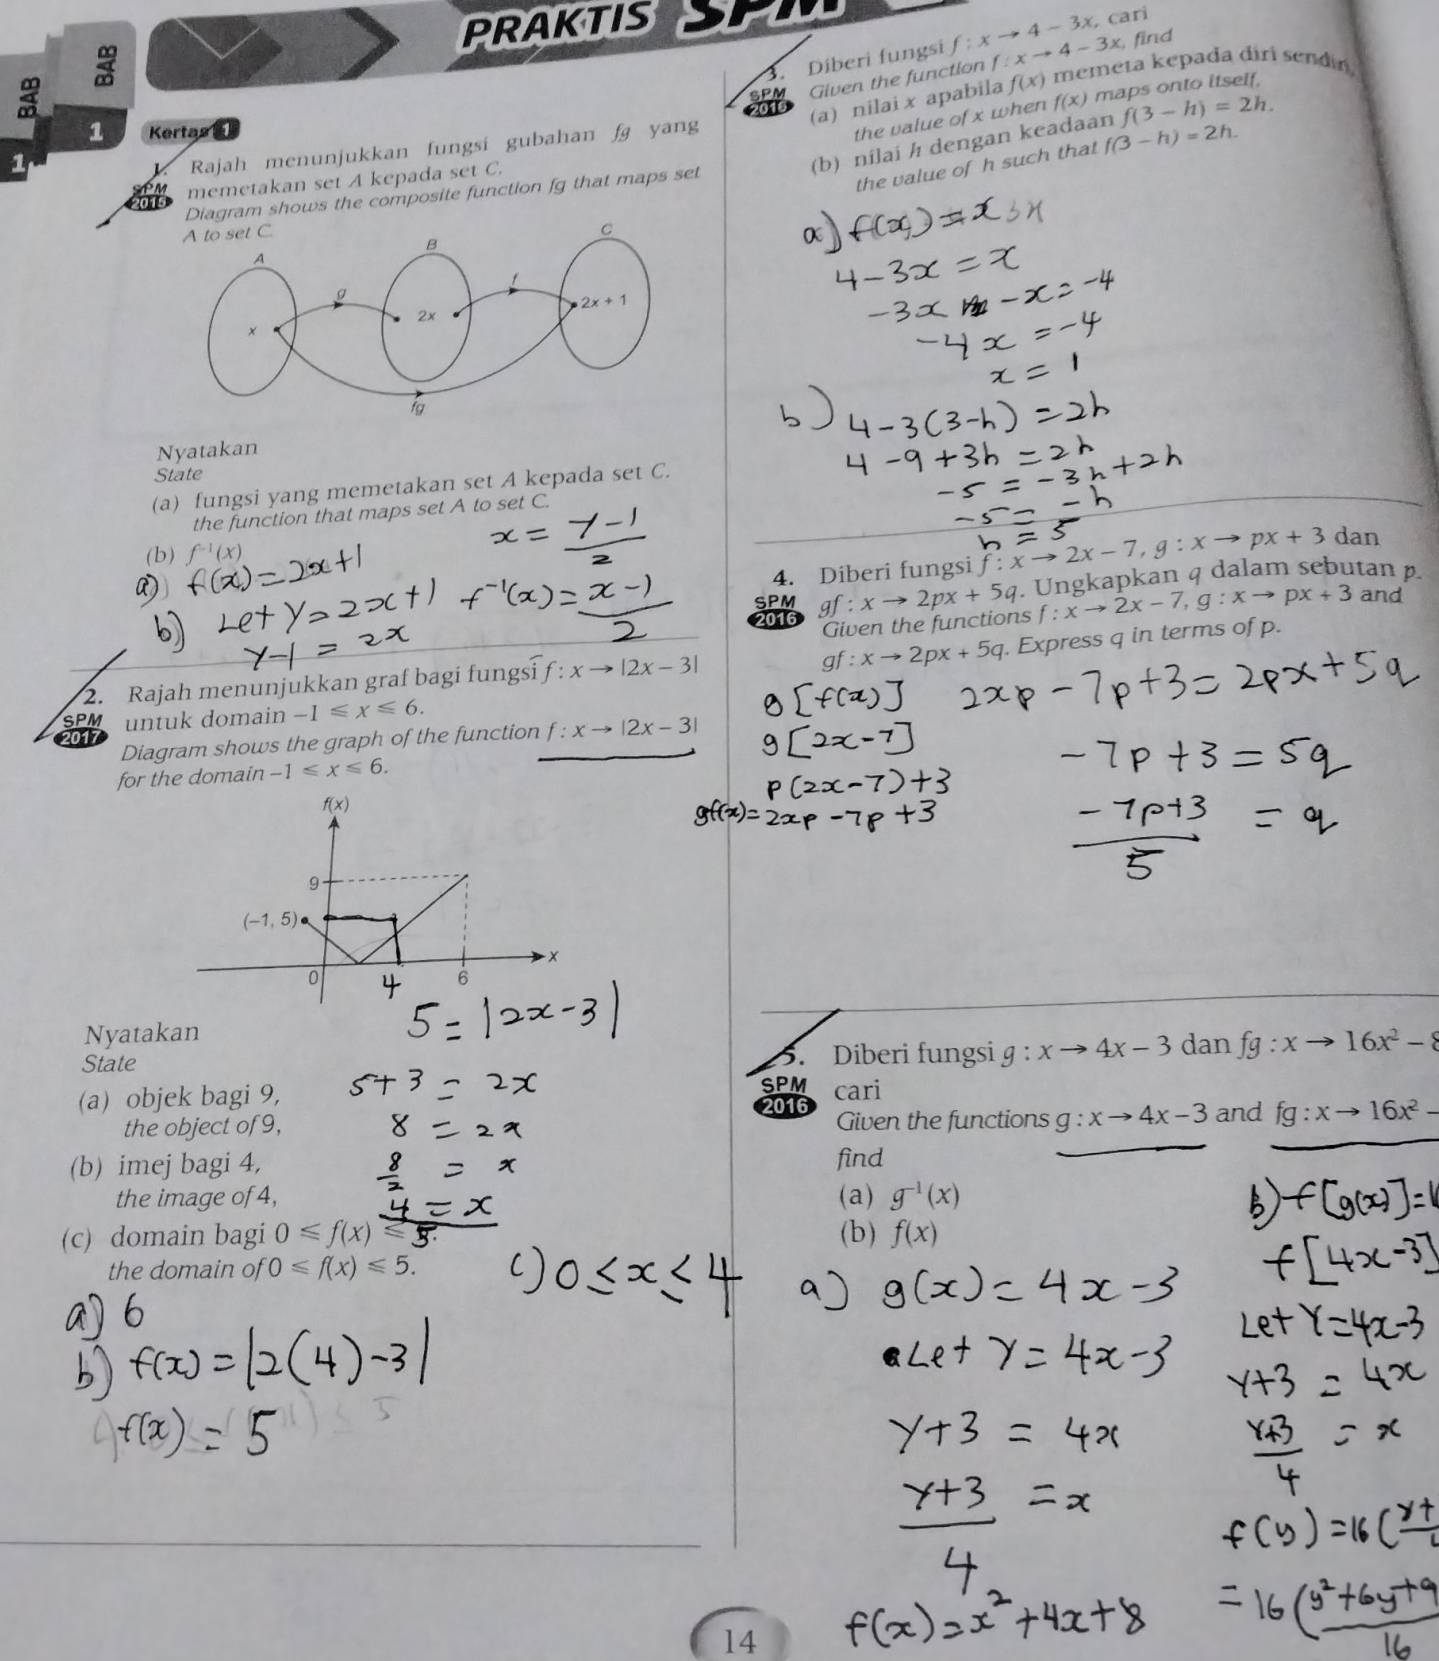 PRAKTIS SPM
BAB
1
BAB
1
Kertas 1
1. Rajah menunjukkan fungsi gubahan fg yang
SPM 2015 memetakan set A kepada set C.
Diagram shows the composite function fg that maps set
A to set C.
A
B
C
g
f
x
2x
2x + 1
fg
Nyatakan
State
(a) fungsi yang memetakan set A kepada set C.
the function that maps set A to set C.
(b) f⁻¹(x)
a) f(x) = 2x+1
b) Let y = 2x+1
y-1 = 2x
x = y-1/2
f⁻¹(x) = x-1/2
2. Rajah menunjukkan graf bagi fungsi f : x → |2x − 3|
SPM 2017 untuk domain −1 ⩽ x ⩽ 6.
Diagram shows the graph of the function f : x → |2x − 3|
for the domain −1 ⩽ x ⩽ 6.
f(x)
9
(−1, 5)
0
4
6
x
Nyatakan
State
(a) objek bagi 9,
the object of 9,
(b) imej bagi 4,
the image of 4,
(c) domain bagi 0 ⩽ f(x) ⩽ 5.
the domain of 0 ⩽ f(x) ⩽ 5.
5 = |2x-3|
5+3 = 2x
8 = 2x
8/2 = x
4 = x
a) 6
b) f(x) = |2(4)-3|
f(x) = 5
c) 0 ≤ x ≤ 4
3. Diberi fungsi f : x → 4 − 3x, cari
SPM 2016 Given the function f : x → 4 − 3x, find
(a) nilai x apabila f(x) memeta kepada diri sendiri,
the value of x when f(x) maps onto itself,
(b) nilai h dengan keadaan f(3 − h) = 2h.
the value of h such that f(3 − h) = 2h.
a) f(x) = x
4-3x = x
-3x -x = -4
-4x = -4
x = 1
b) 4-3(3-h) = 2h
4-9+3h = 2h
-5 = -3h+2h
-5 = -h
h = 5
4. Diberi fungsi f : x → 2x − 7, g : x → px + 3 dan
SPM 2016 gf : x → 2px + 5q. Ungkapkan q dalam sebutan p.
Given the functions f : x → 2x − 7, g : x → px + 3 and
gf : x → 2px + 5q. Express q in terms of p.
g[f(x)]
g[2x-7]
p(2x-7)+3
gf(x) = 2xp-7p+3
2xp-7p+3 = 2px+5q
-7p+3 = 5q
-7p+3/5 = q
5. Diberi fungsi g : x → 4x − 3 dan fg : x → 16x² − 8
SPM 2016 cari
Given the functions g : x → 4x − 3 and fg : x → 16x² −
find
(a) g⁻¹(x)
(b) f(x)
a) g(x) = 4x-3
Let y = 4x-3
y+3 = 4x
y+3/4 = x
f(x) = x²+4x+8
b) f[g(x)] = 1
f[4x-3]
Let y = 4x-3
y+3 = 4x
y+3/4 = x
f(y) = 16(y+
= 16(y²+6y+9/16
14